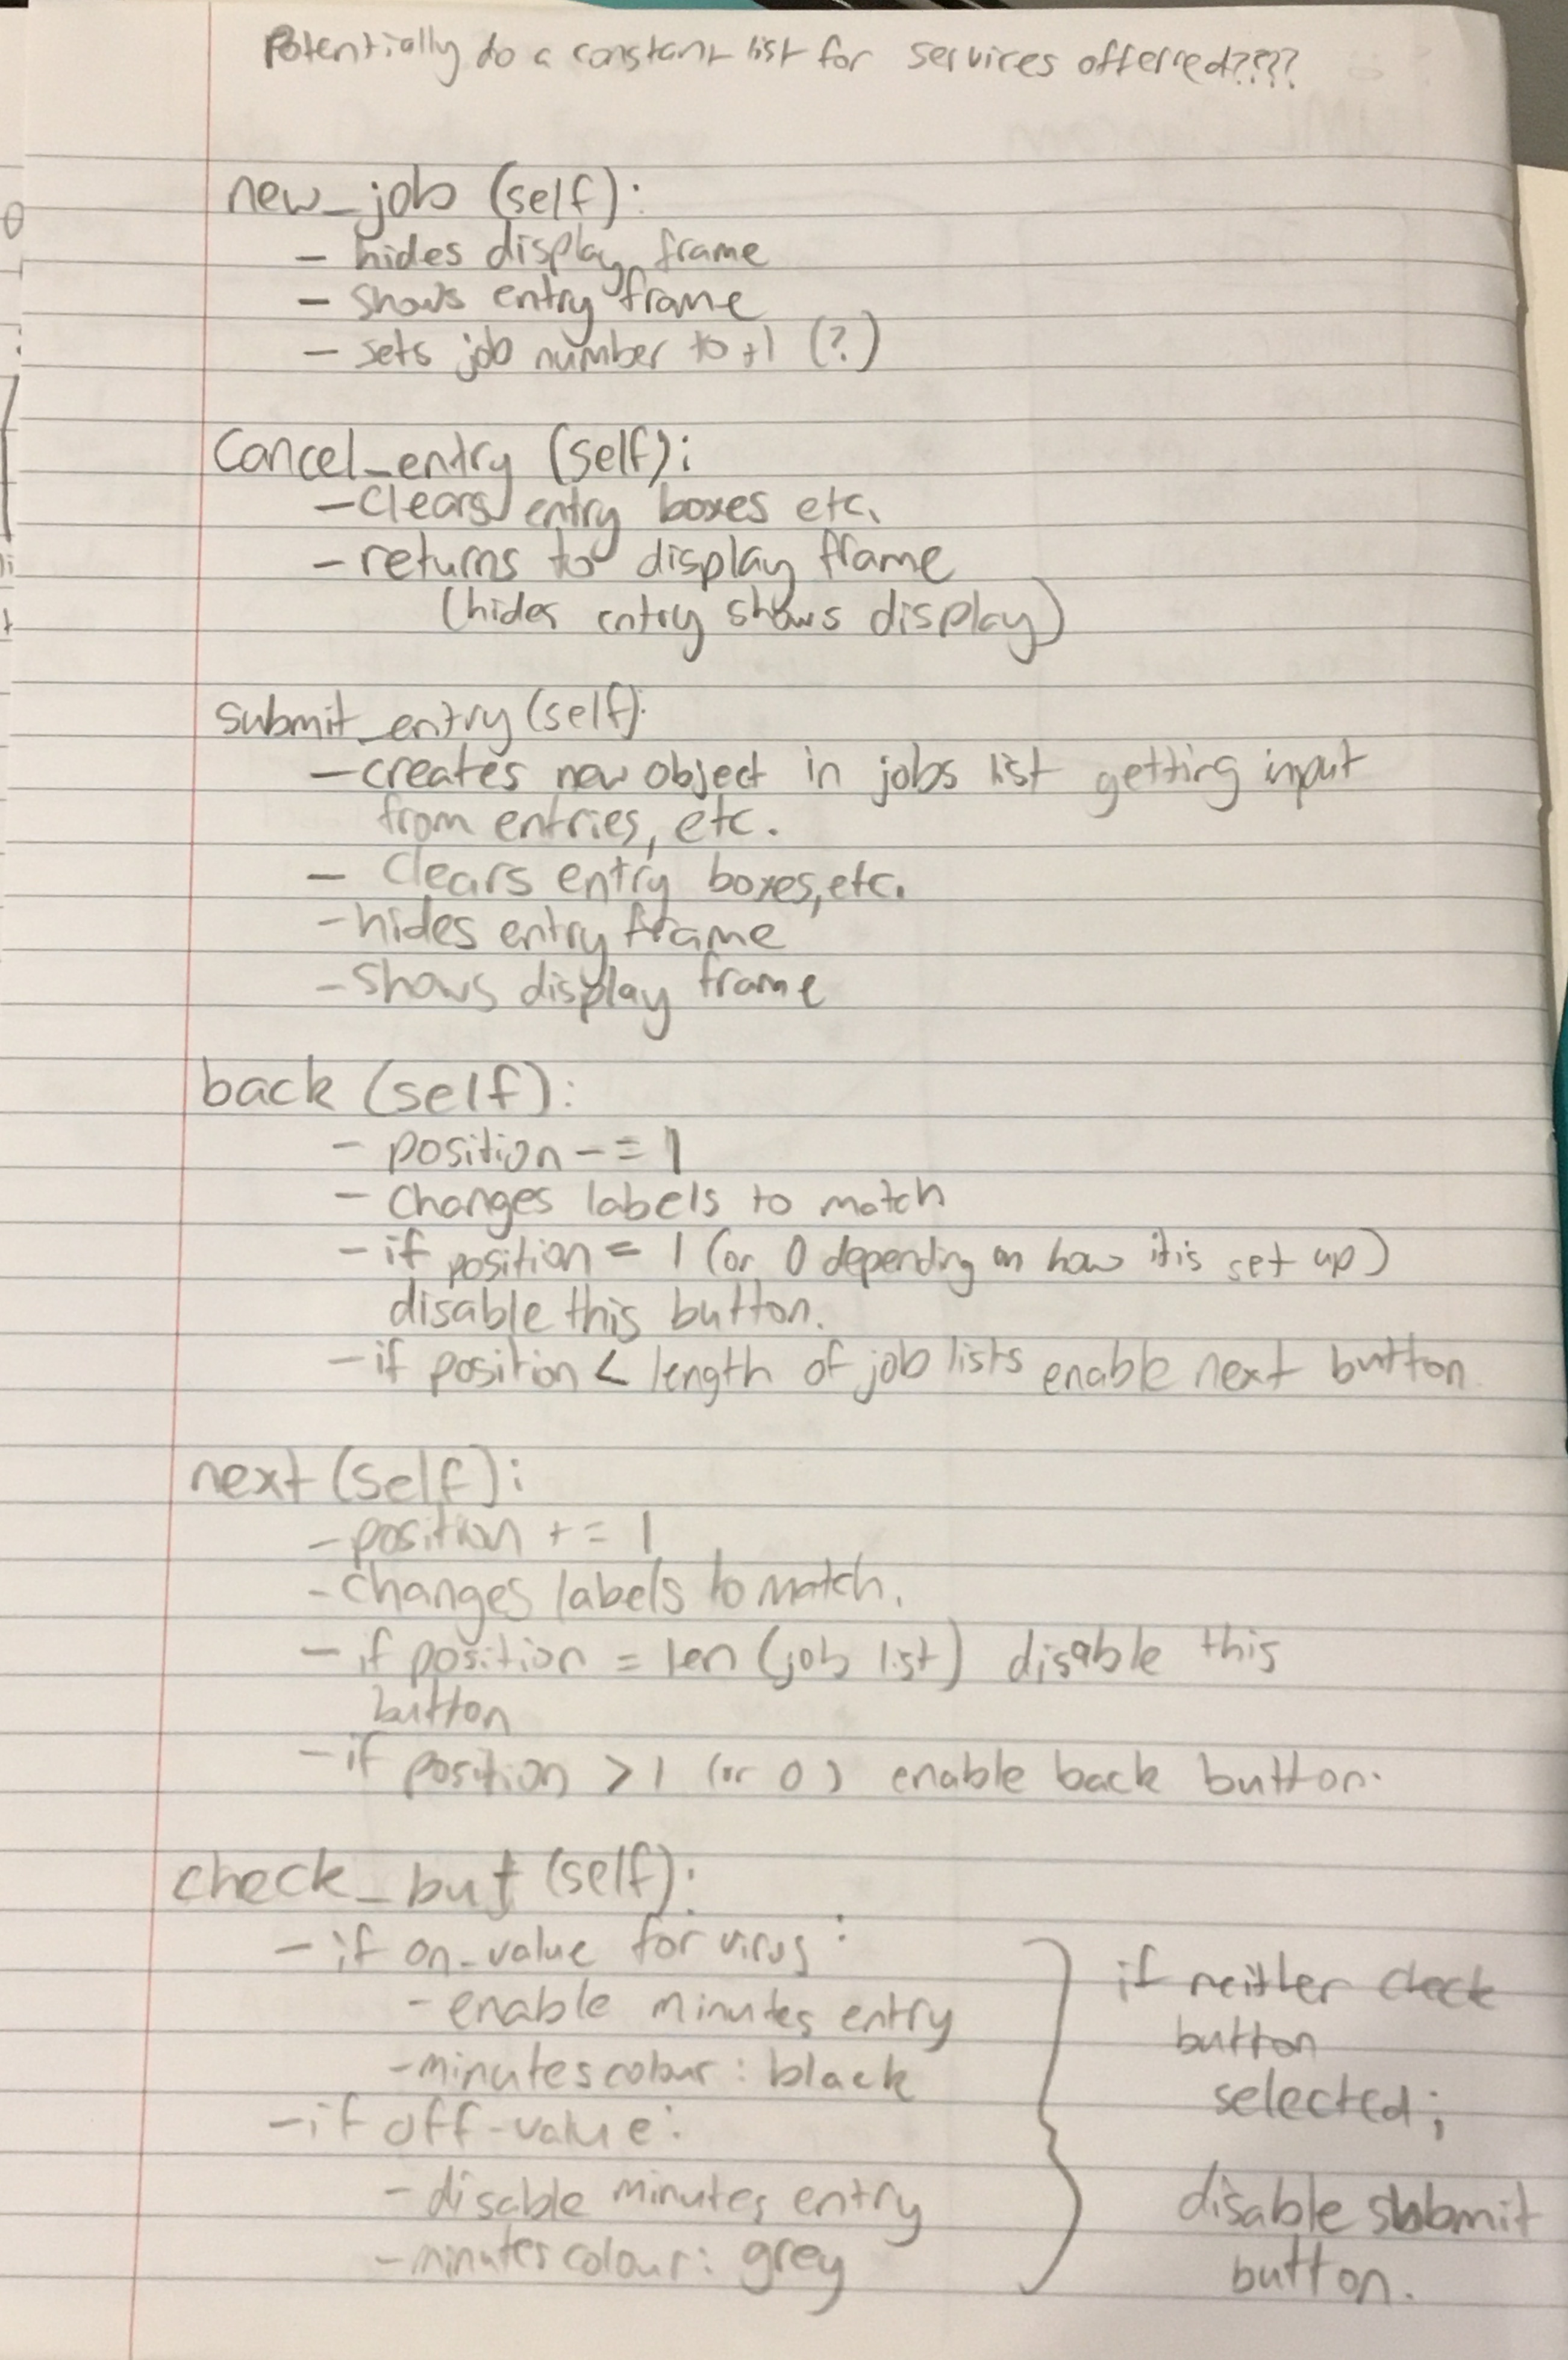 Potentially do a constant list for services offerred????
new_job (self):
- hides display frame
- shows entry frame
- sets job number to +1 (?)
Cancel_entry (self):
- Clears entry boxes etc.
- returns to display frame
(hides entry shows display)
submit_entry (self):
- creates new object in jobs list getting input
from entries, etc.
- Clears entry boxes, etc.
- hides entry frame
- shows display frame
back (self):
- position -= 1
- changes labels to match
- if position = 1 (or 0 depending on how it is set up)
disable this button.
- if position < length of job lists enable next button
next (self):
- position += 1
- changes labels to match.
- if position = len (job list) disable this
button
- if position > 1 (or 0) enable back button.
check_but (self):
- if on_value for virus :
- enable minutes entry
- minutes colour : black
- if off-value :
- disable minutes entry
- minutes colour : grey
if neither check
button
selected;
disable submit
button.